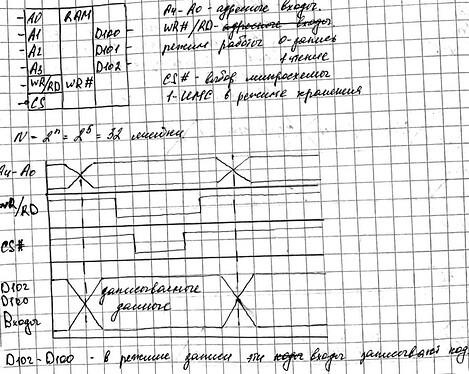 A0 RAM
A1 D1O0
A2 D1O1
A3 D1O2
WR/RD WR#
CS
A4-A0 - адресные входы.
WR#/RD- адресные входы
режим работы 0-запись
1 чтение
CS# - выбор микросхемы
1-ИМС в режиме хранения
N - 2ⁿ = 2⁵ = 32 ячейки
A4-A0
WR/RD
CS#
D1O2
D1O0
Входы
записываемые
данные
D1O2-D1O0 - в режиме записи эти коды входы записываемый код